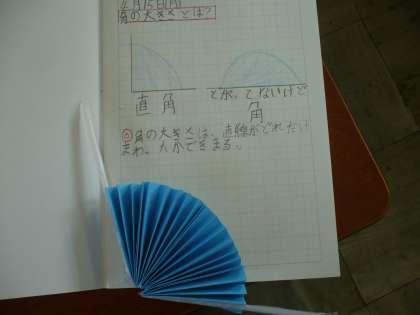 4月15日(月)
角の大きさとは?
直角
とがってないけど
角
角の大きさは、直線がどれだけ
まわったかできまる。